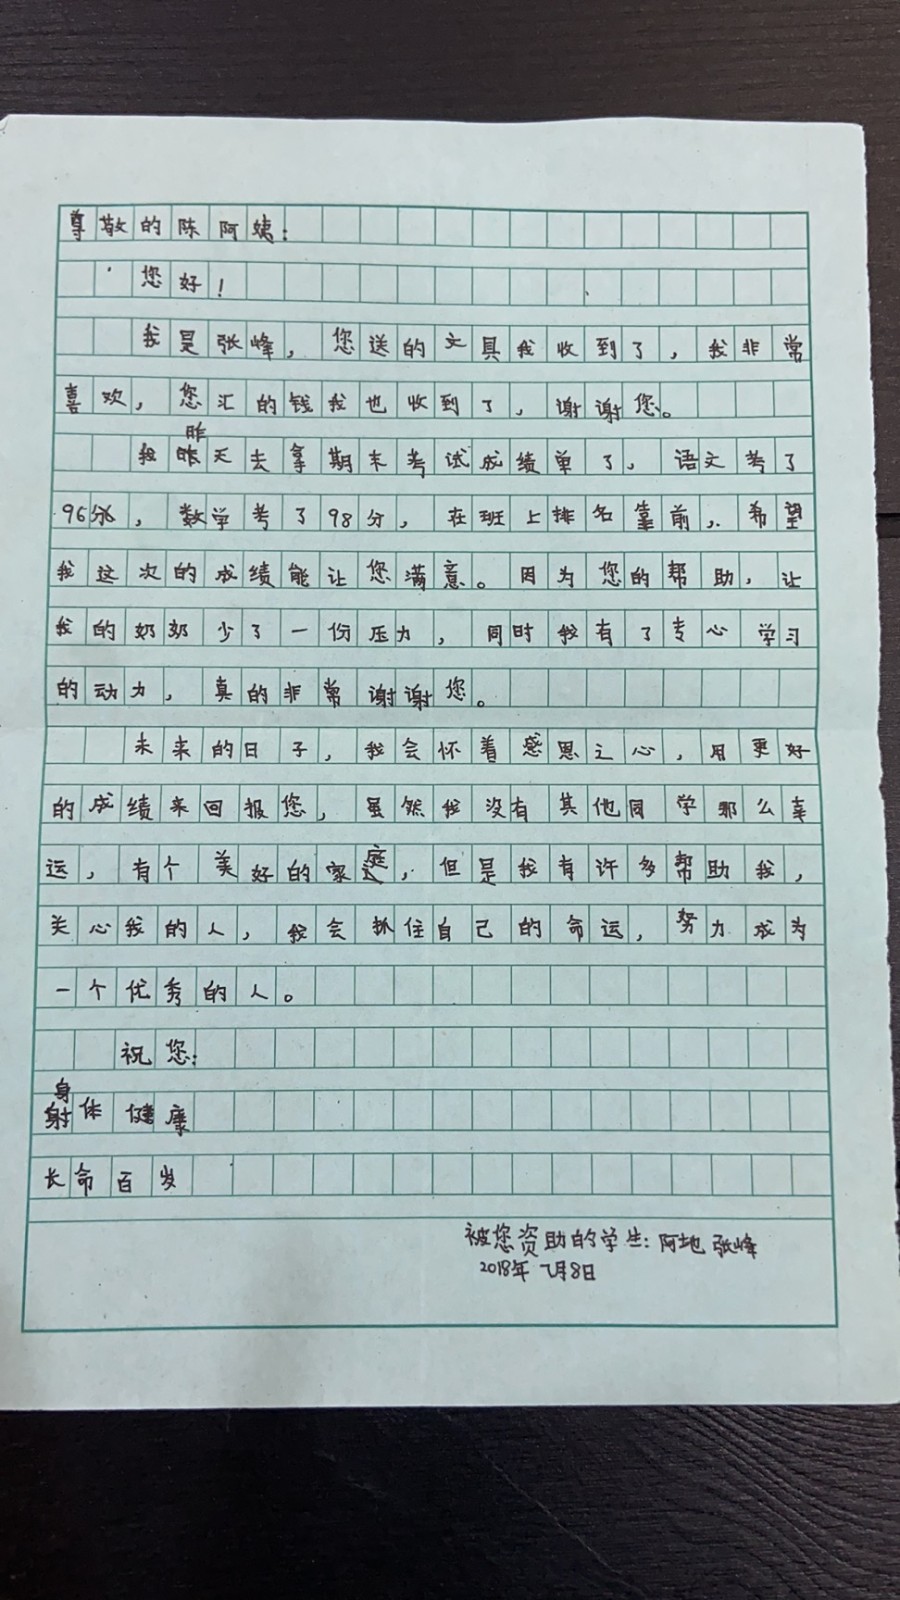 尊敬的陈阿姨：
您好！
我是张峰，您送的文具我收到了，我非常
喜欢，您汇的钱我也收到了，谢谢您。
昨
我昨天去拿期末考试成绩单了，语文考了
96分，数学考了98分，在班上排名靠前，希望
我这次的成绩能让您满意。因为您的帮助，让
我的奶奶少了一份压力，同时我有了专心学习
的动力，真的非常谢谢您。
未来的日子，我会怀着感恩之心，用更好
的成绩来回报您，虽然我没有其他同学那么幸
运，有个美好的家庭，但是我有许多帮助我，
关心我的人，我会抓住自己的命运，努力成为
一个优秀的人。
祝您：
身
射体健康
长命百岁
被您资助的学生：阿地张峰
2018年7月8日